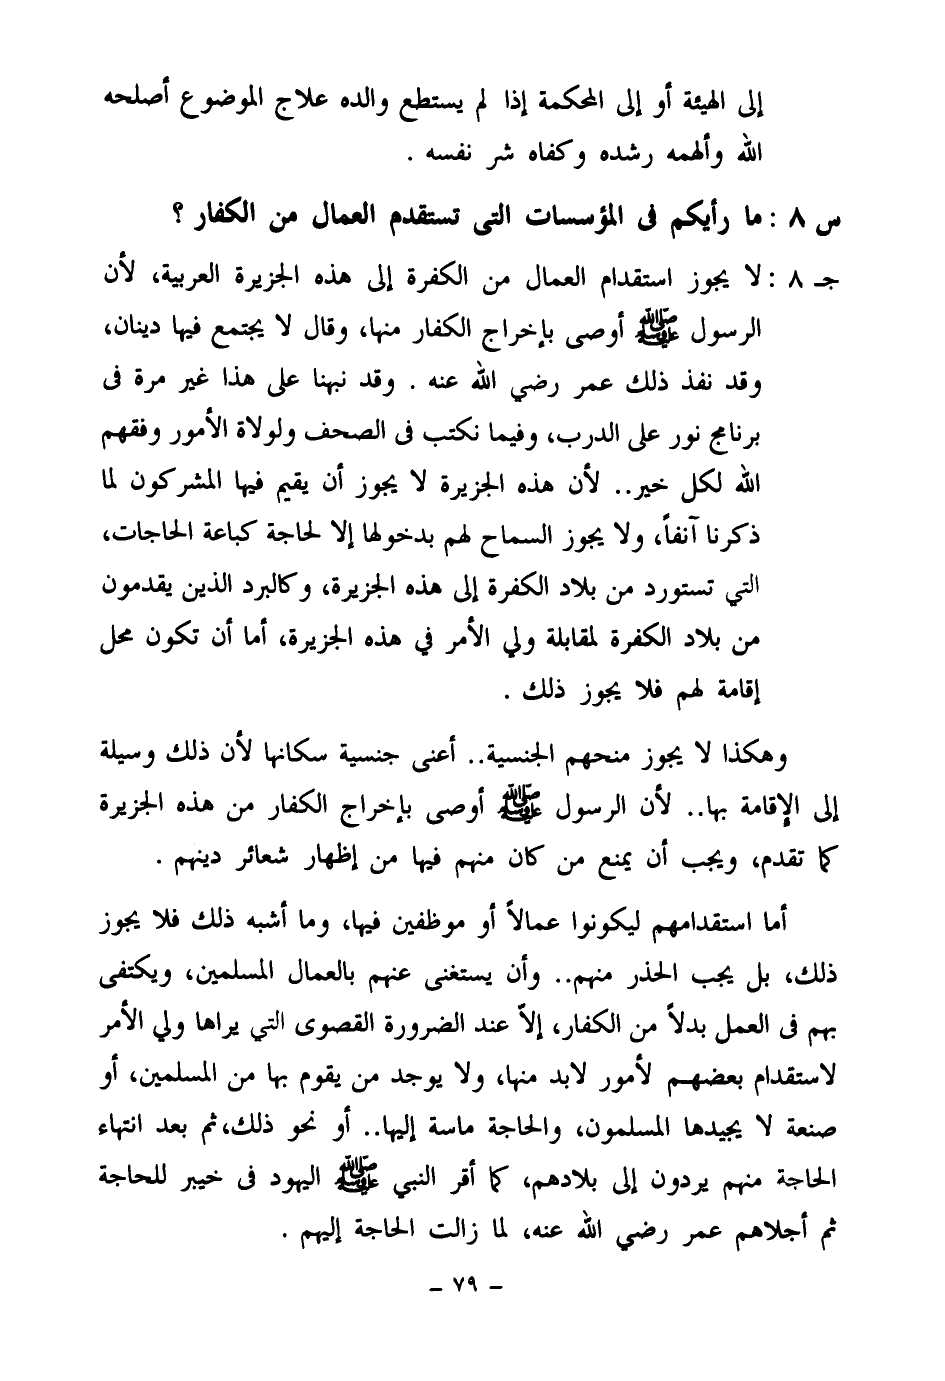 إلى الهيئة أو إلى المحكمة إذا لم يستطع والده علاج الموضوع أصلحه
الله وألهمه رشده وكفاه شر نفسه .
س ٨ : ما رأيكم فى المؤسسات التى تستقدم العمال من الكفار ؟
جـ ٨ : لا يجوز استقدام العمال من الكفرة إلى هذه الجزيرة العربية، لأن
الرسول ﷺ أوصى بإخراج الكفار منها، وقال لا يجتمع فيها دينان،
وقد نفذ ذلك عمر رضي الله عنه . وقد نبهنا على هذا غير مرة فى
برنامج نور على الدرب، وفيما نكتب فى الصحف ولولاة الأمور وفقهم
الله لكل خير.. لأن هذه الجزيرة لا يجوز أن يقيم فيها المشركون لما
ذكرنا آنفاً، ولا يجوز السماح لهم بدخولها إلا لحاجة كباعة الحاجات،
التي تستورد من بلاد الكفرة إلى هذه الجزيرة، وكالبرد الذين يقدمون
من بلاد الكفرة لمقابلة ولي الأمر في هذه الجزيرة، أما أن تكون محل
إقامة لهم فلا يجوز ذلك .
وهكذا لا يجوز منحهم الجنسية.. أعنى جنسية سكانها لأن ذلك وسيلة
إلى الإقامة بها.. لأن الرسول ﷺ أوصى بإخراج الكفار من هذه الجزيرة
كما تقدم، ويجب أن يمنع من كان منهم فيها من إظهار شعائر دينهم .
أما استقدامهم ليكونوا عمالاً أو موظفين فيها، وما أشبه ذلك فلا يجوز
ذلك، بل يجب الحذر منهم.. وأن يستغنى عنهم بالعمال المسلمين، ويكتفى
بهم فى العمل بدلاً من الكفار، إلاّ عند الضرورة القصوى التي يراها ولي الأمر
لاستقدام بعضهم لأمور لابد منها، ولا يوجد من يقوم بها من المسلمين، أو
صنعة لا يجيدها المسلمون، والحاجة ماسة إليها.. أو نحو ذلك،ثم بعد انتهاء
الحاجة منهم يردون إلى بلادهم، كما أقر النبي ﷺ اليهود فى خيبر للحاجة
ثم أجلاهم عمر رضي الله عنه، لما زالت الحاجة إليهم .
– ٧٩ –